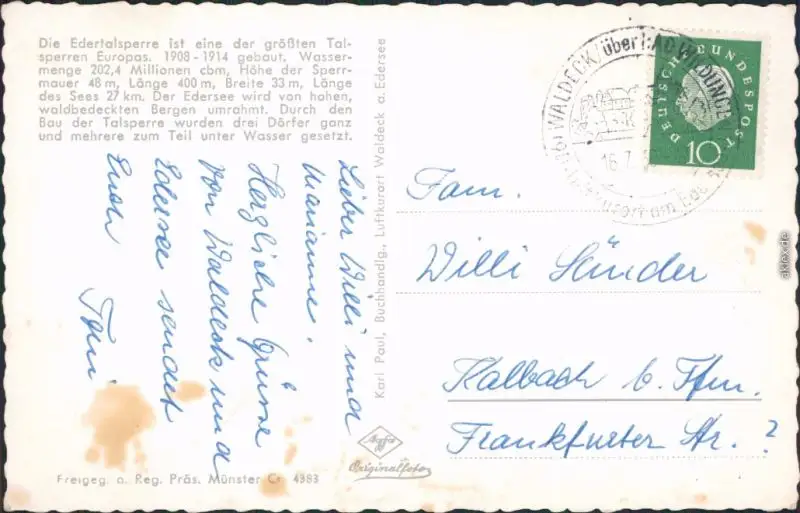 Die Edertalsperre ist eine der größten Tal-
sperren Europas. 1908-1914 gebaut. Wasser-
menge 202,4 Millionen cbm, Höhe der Sperr-
mauer 48 m, Länge 400 m, Breite 33 m, Länge
des Sees 27 km. Der Edersee wird von hohen,
waldbedeckten Bergen umrahmt. Durch den
Bau der Talsperre wurden drei Dörfer ganz
und mehrere zum Teil unter Wasser gesetzt.
Lieber Willi und
Marianne.
Herzliche Grüsse
von Waldeck und
Edersee sendet
Euch
Toni
Freigeg. d. Reg. Präs. Münster Cr 4383
Karl Paul, Buchhandlg., Luftkurort Waldeck a. Edersee
Agfa
Originalfoto
(16) WALDECK/über BAD WILDUNGEN
16.7.
Luftkurort am Edersee
DEUTSCHE BUNDESPOST
10
Fam.
Willi Sünder
Kalbach b. Ffm.
Frankfurter Str. ?
aklex.de